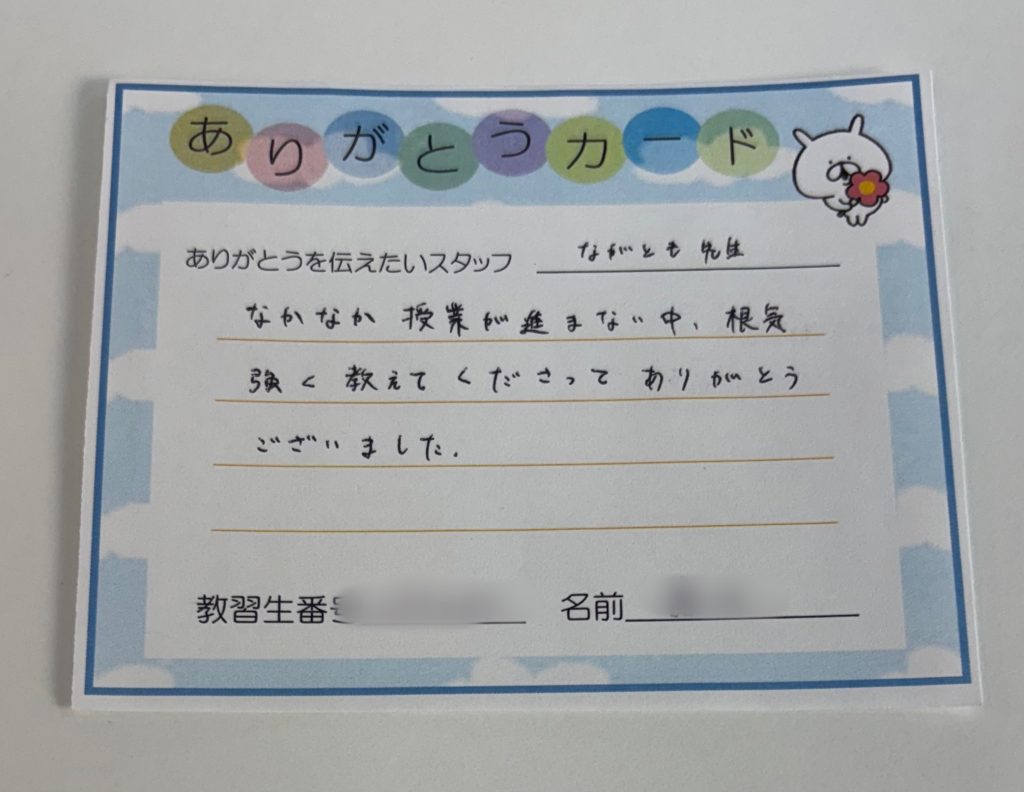 ありがとうカード
ありがとうを伝えたいスタッフ ながとも先生
なかなか授業が進まない中、根気
強く教えてくださってありがとう
ございました.
教習生番号 名前